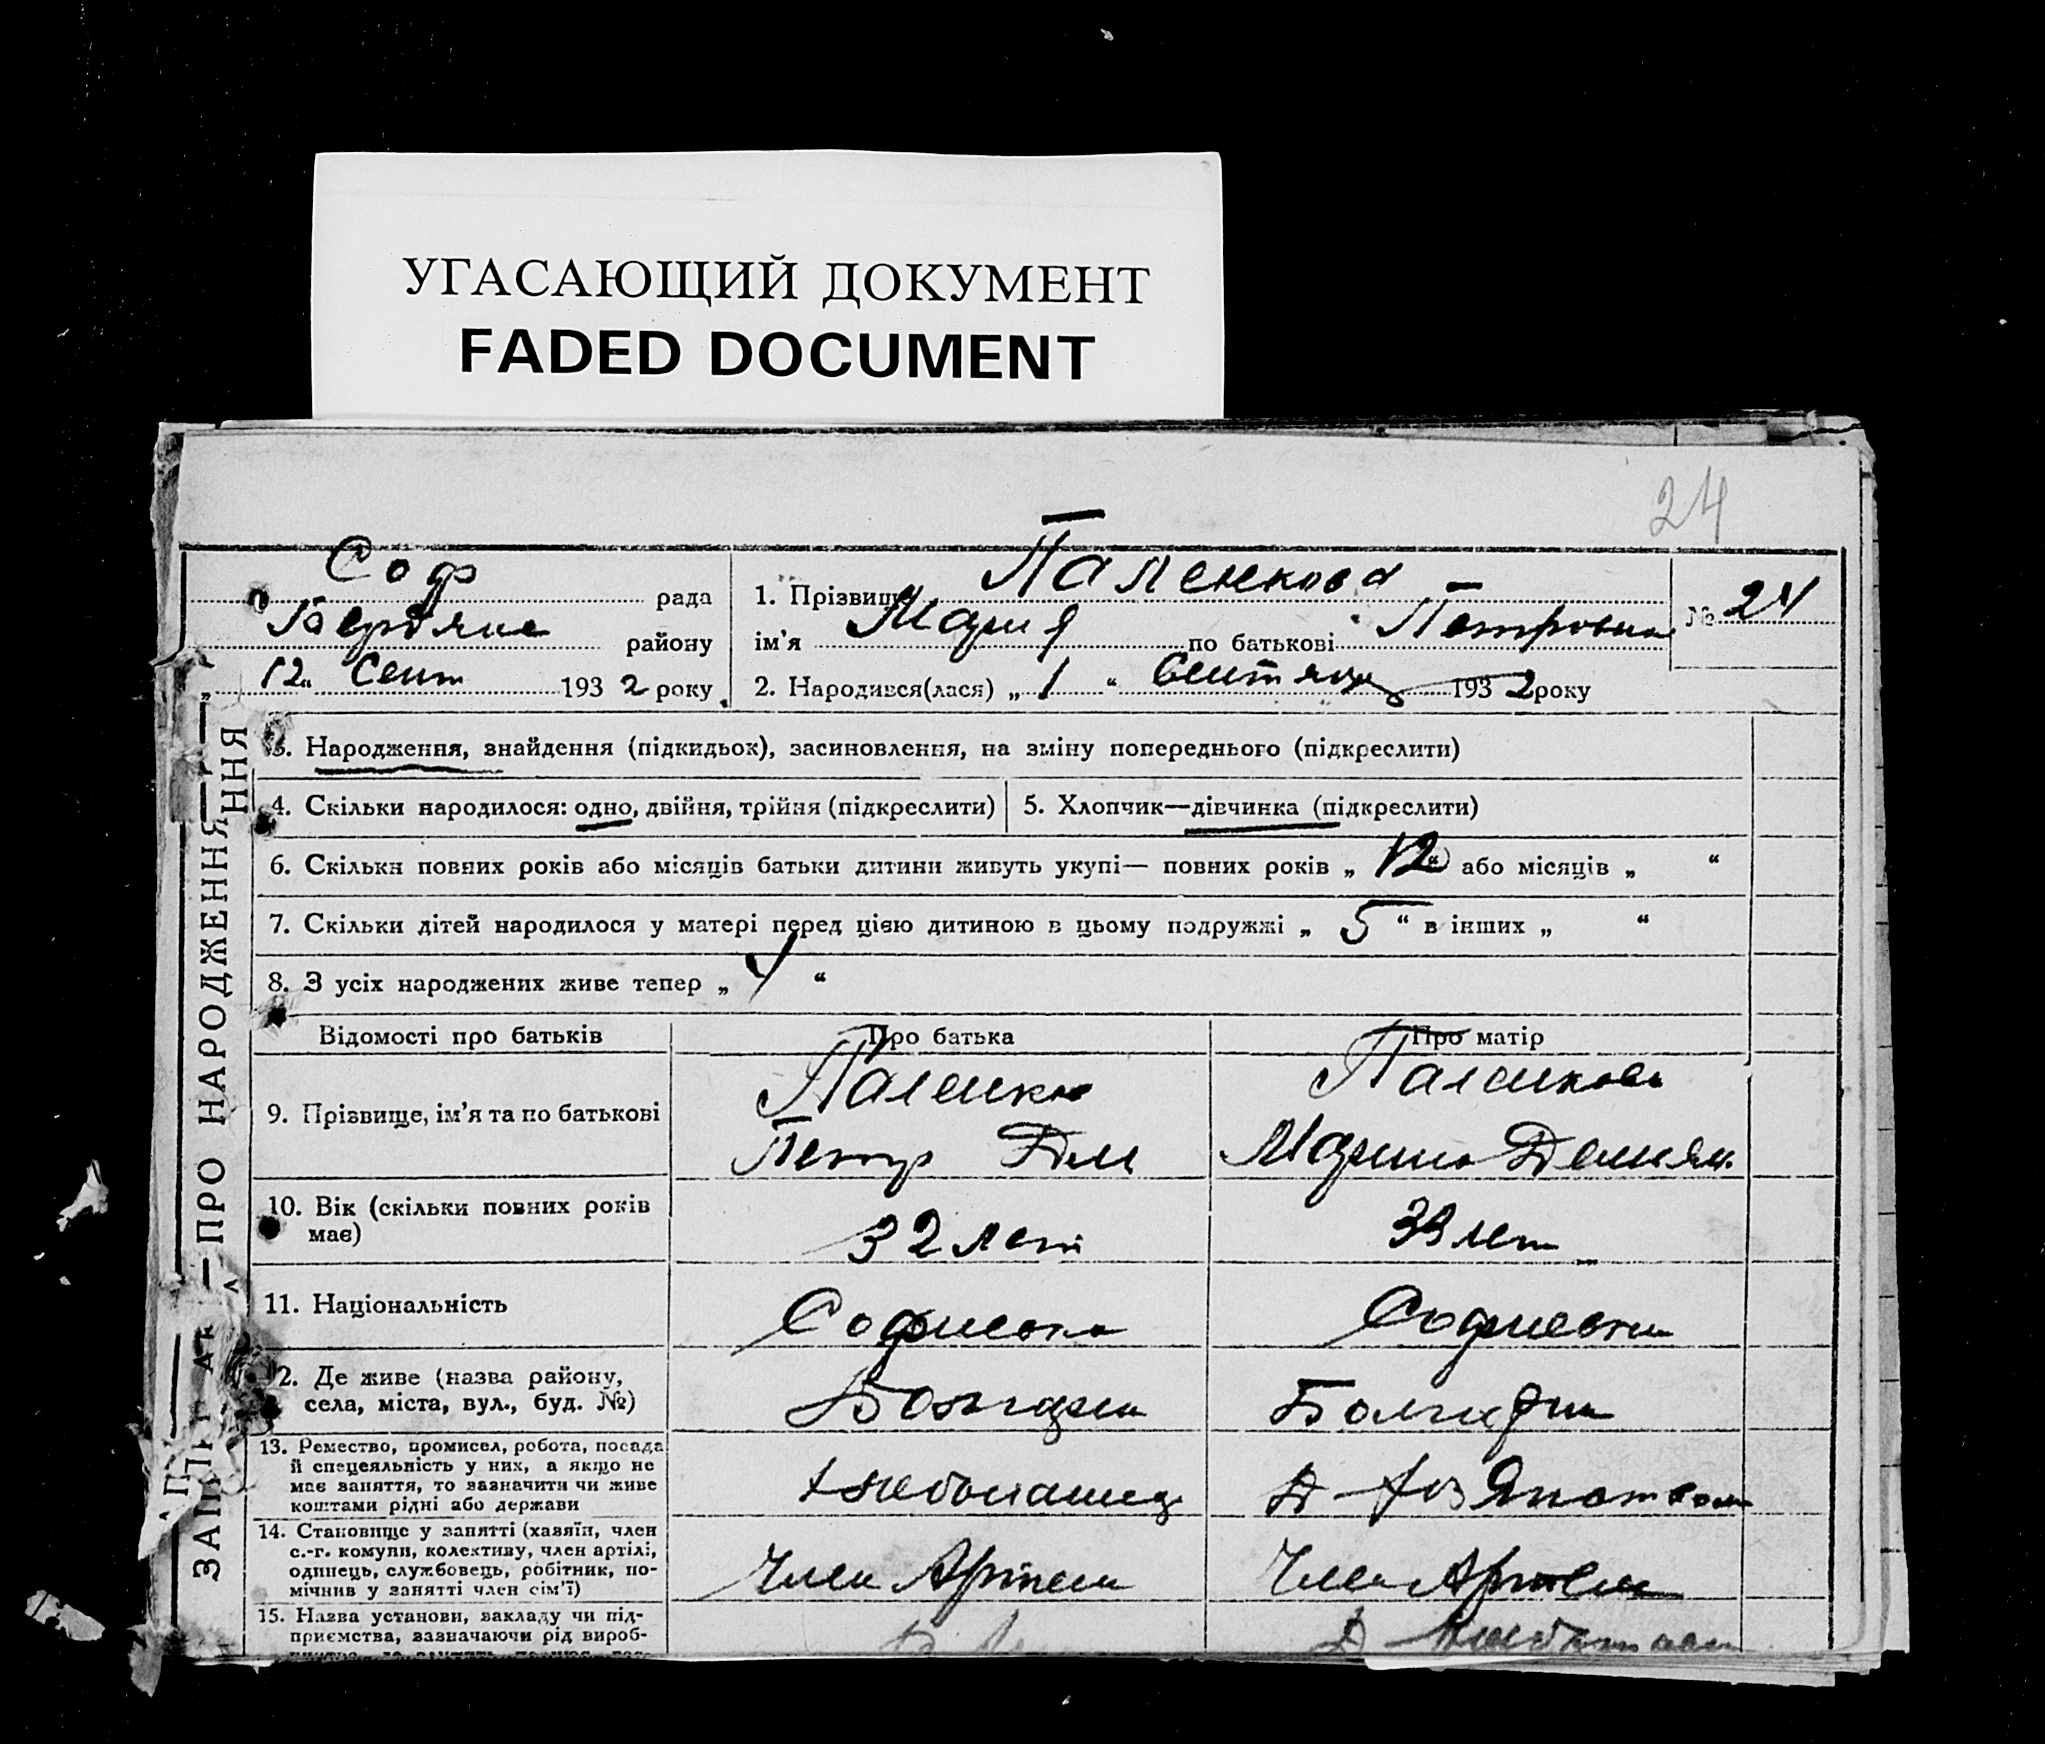 УГАСАЮЩИЙ ДОКУМЕНТ
FADED DOCUMENT
24
Соф рада
Бердянс району
„ 12 “ Сент 1932 року
1. Прізвище Паленкова
ім'я Мария по батькові Петровна
№ 24
2. Народився(лася) „ 1 “ Сентября 1932 року
ЗАПИС АКТ ПРО НАРОДЖЕННЯ
ННЯ
3. Народження, знайдення (підкидьок), засиновлення, на зміну попереднього (підкреслити)
4. Скільки народилося: одно, двійня, трійня (підкреслити)
5. Хлопчик—дівчинка (підкреслити)
6. Скільки повних років або місяців батьки дитини живуть укупі— повних років „ 12 “ або місяців „ “
7. Скільки дітей народилося у матері перед цією дитиною в цьому подружжі „ 5 “ в інших „ “
8. З усіх народжених живе тепер „ 4 “
Відомості про батьків
Про батька
Про матір
9. Прізвище, ім'я та по батькові
Паленко
Петр Дем
Паленкова
Марина Демьян.
10. Вік (скільки повних років
має)
32 лет
33 лет
11. Національність
Софиевка
Софиевка
12. Де живе (назва району,
села, міста, вул., буд. №)
Болгари
Болгарин
13. Ремество, промисел, робота, посада
й спецеяльність у них, а якщо не
має заняття, то зазначити чи живе
коштами рідні або держави
Хлебопашец
14. Становище у занятті (хазяїн, член
с.-г. комуни, колективу, член артілі,
одинець, службовець, робітник, по-
мічнив у занятті член сім'ї)
Член Артели
Член Артели
15. Назва установи, закладу чи під-
приємства, зазначаючи рід вироб-